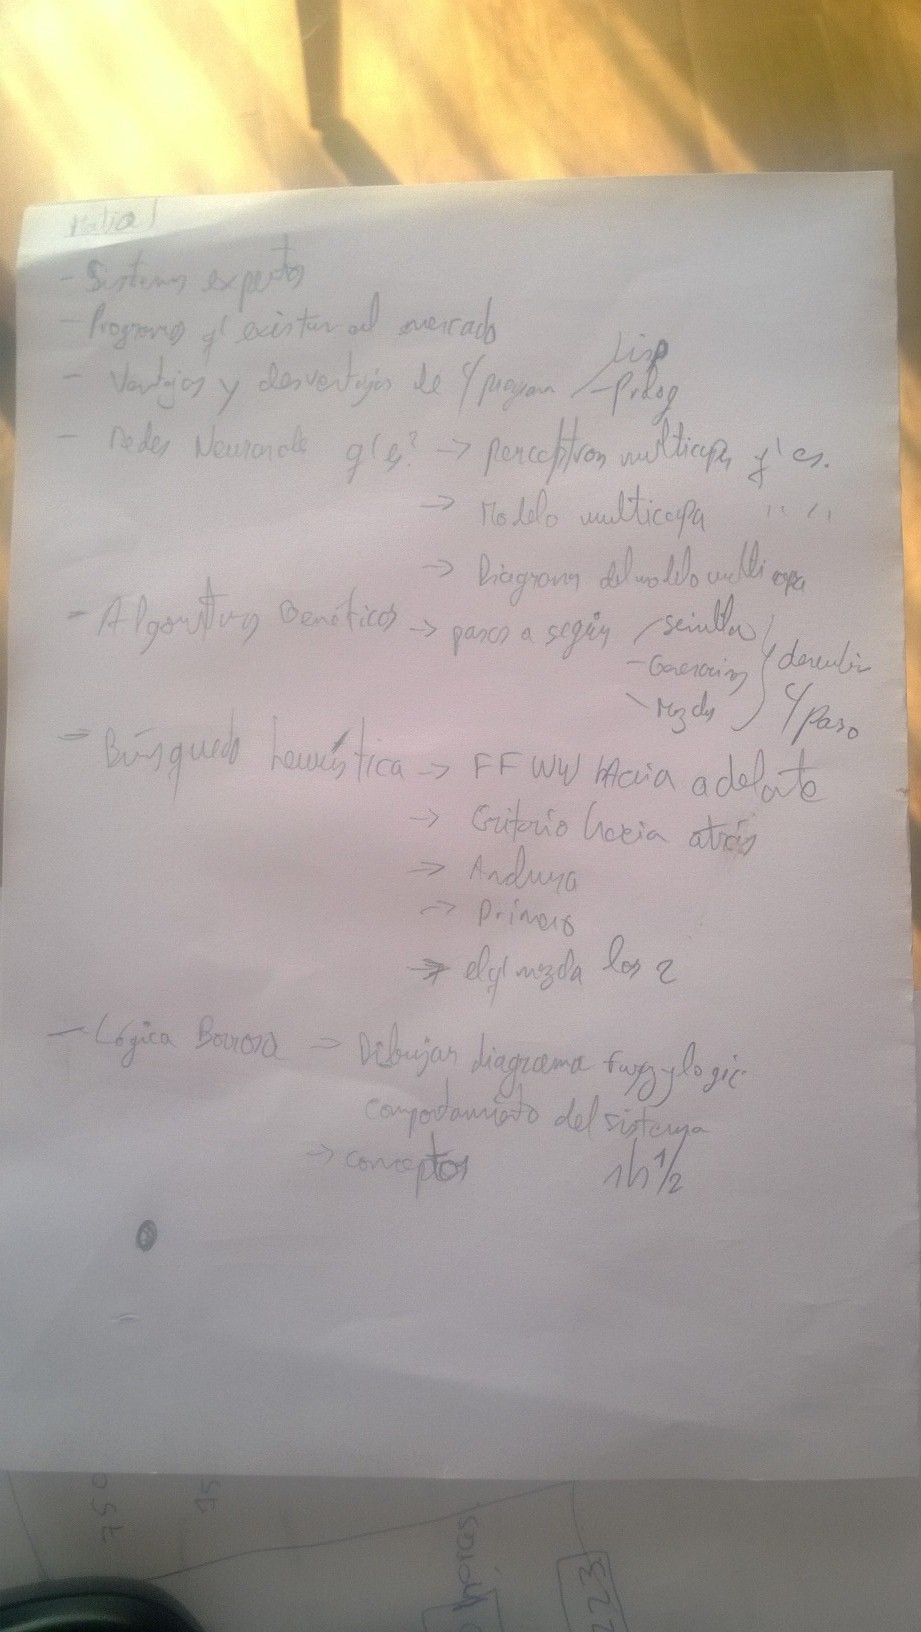 - Sistemas expertos
- Programas q' existen al mercado
- Ventajas y desventajas de c/ program
Lisp
- Prolog
- Redes Neuronale q' es? → perceptron multicapa q' es.
→ Modelo multicapa " "
→ Diagrama del modelo multicapa
- Algoritmos Genéticos → pasos a seguir
semilla
- Generacion
Mezcla
describir
c/ paso
- Búsqueda heurística → FFWW hAcia adelante
→ Criterio hacia atrás
→ Anchura
→ Primero
→ el q' mezcla los 2
- Lógica Borrosa → Dibujar diagrama fuzzylogic
comportamiento del sistema
→ conceptos 1h 1/2
750
15
horas.
223